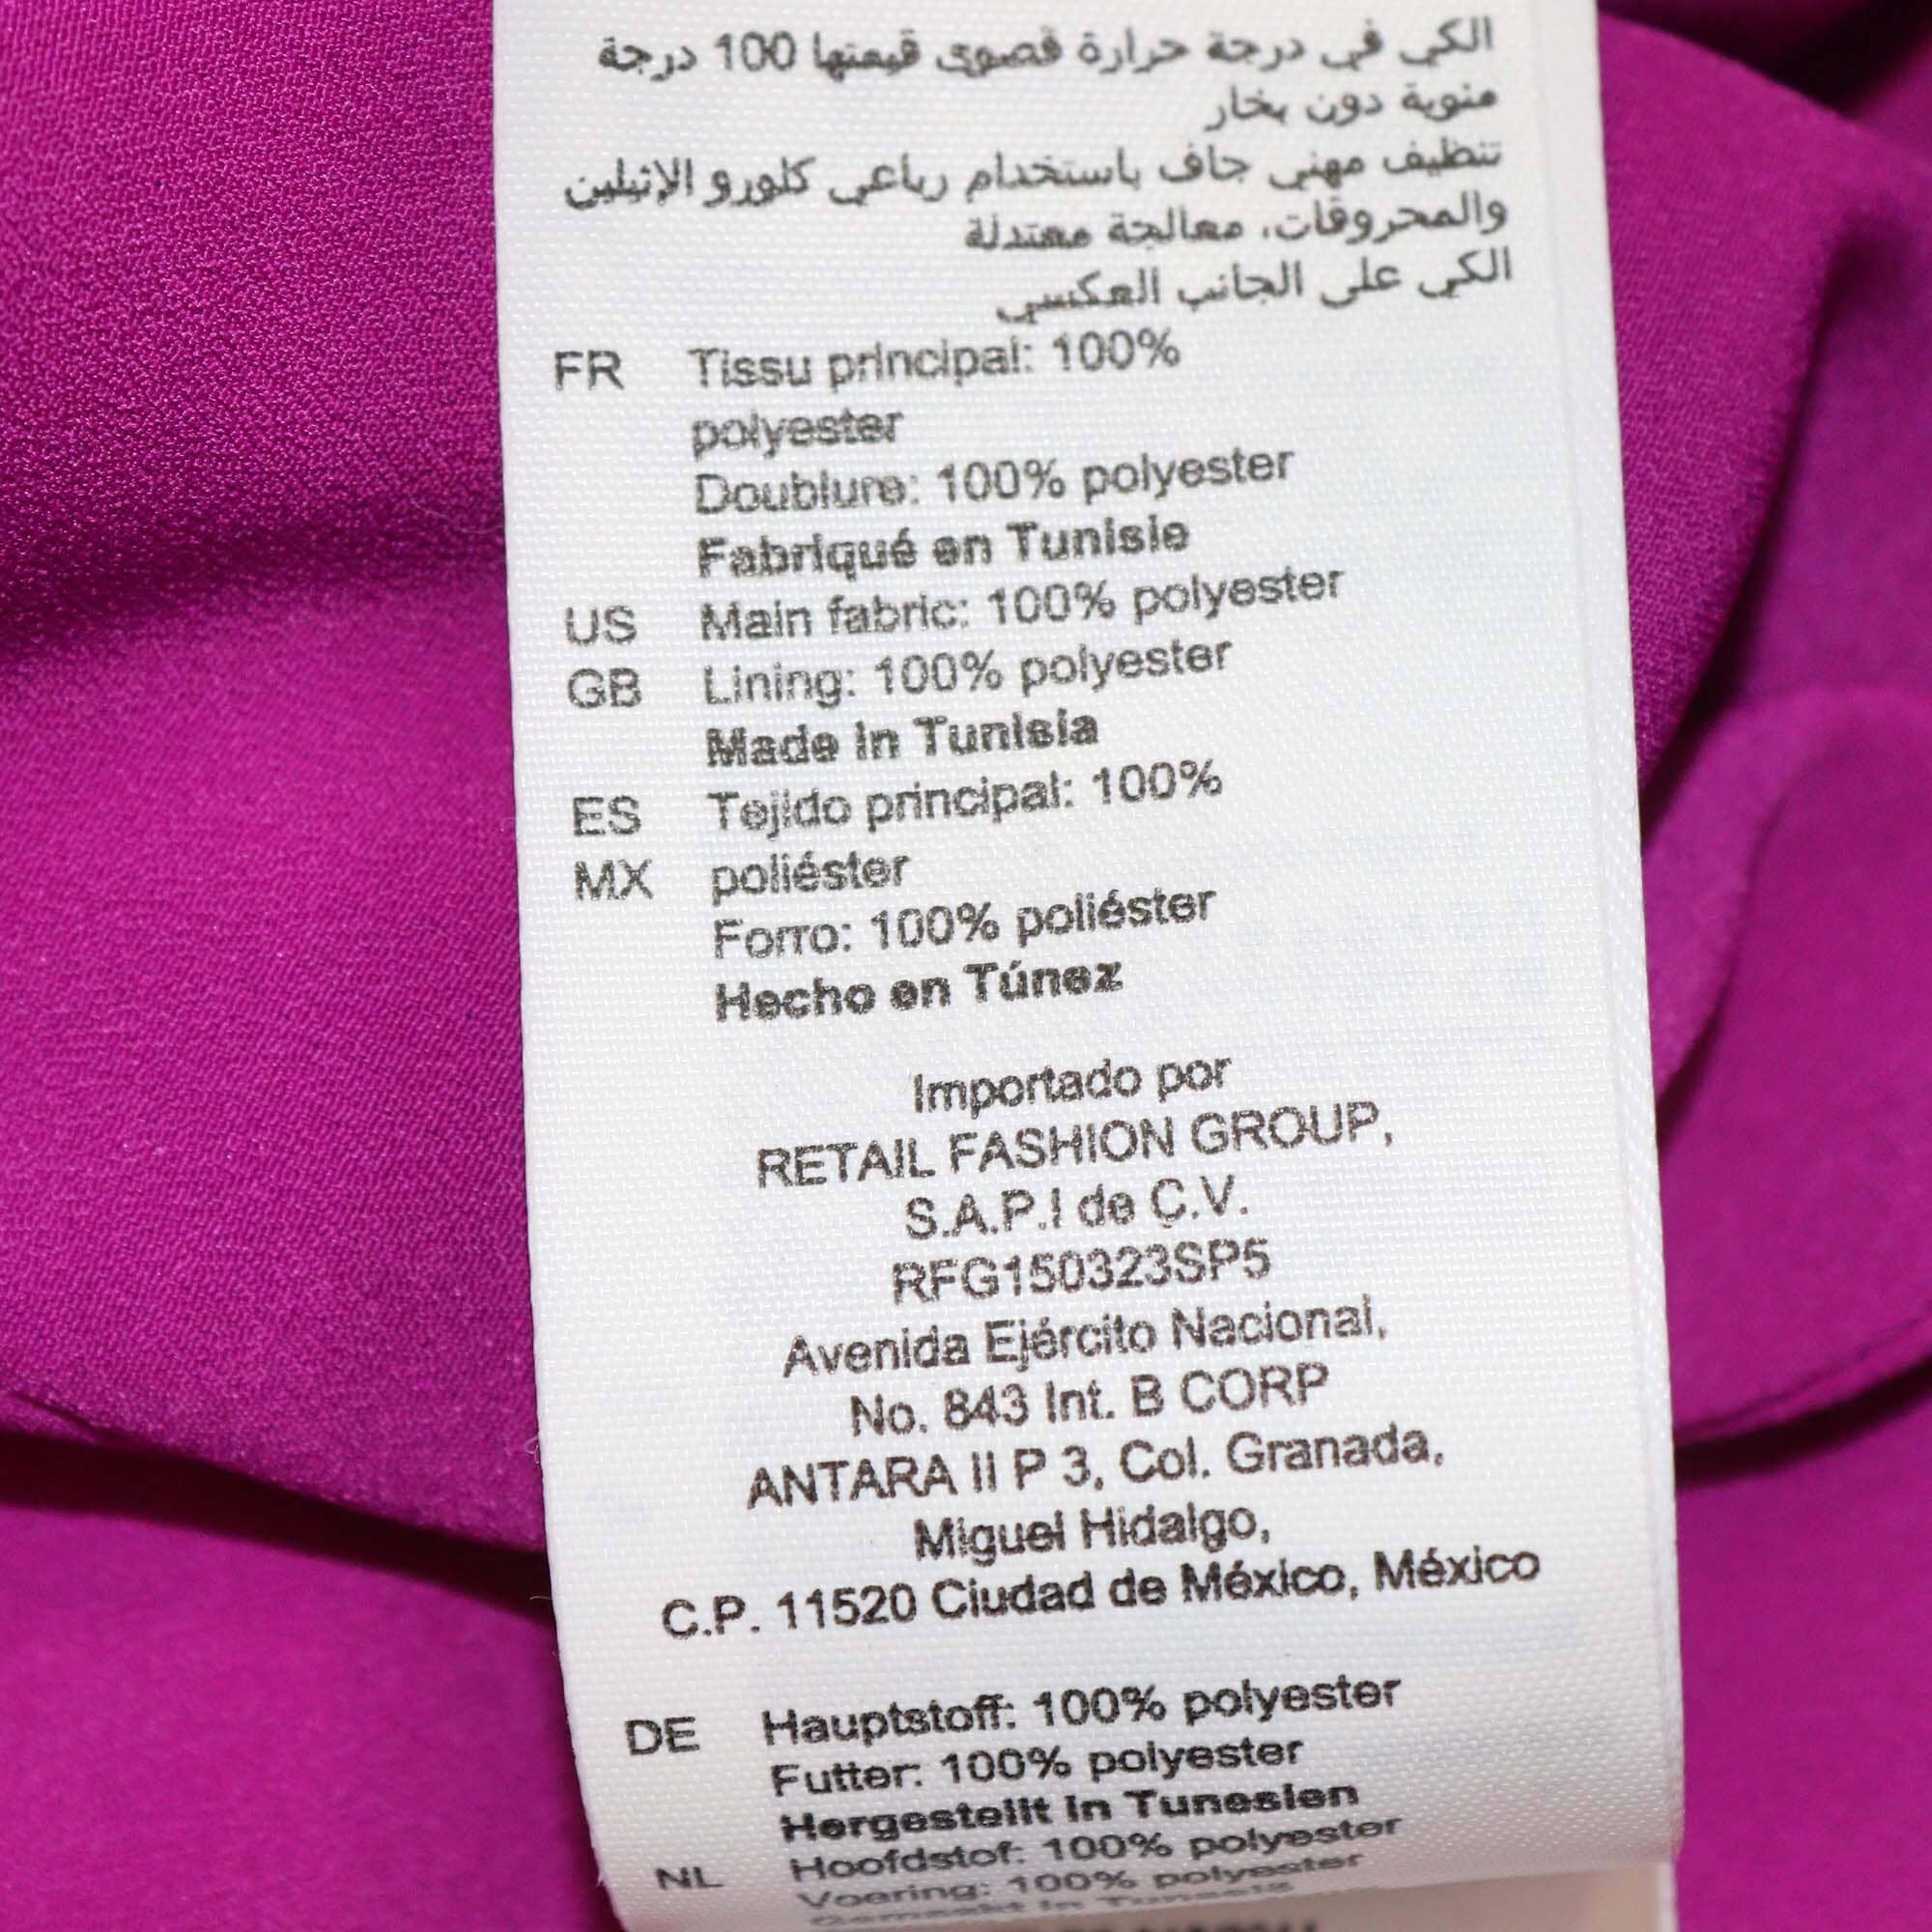 الكي في درجة حرارة قصوى قيمتها 100 درجة
منوية دون بخار
تنظيف مهني جاف باستخدام رباعي كلورو الإثيلين
والمحروقات، معالجة معتدلة
الكي على الجانب العكسي
FR Tissu principal: 100%
polyester
Doublure: 100% polyester
Fabriqué en Tunisie
US Main fabric: 100% polyester
GB Lining: 100% polyester
Made in Tunisia
ES Tejido principal: 100%
MX poliéster
Forro: 100% poliéster
Hecho en Túnez
Importado por
RETAIL FASHION GROUP,
S.A.P.I de C.V.
RFG150323SP5
Avenida Ejército Nacional,
No. 843 Int. B CORP
ANTARA II P 3, Col. Granada,
Miguel Hidalgo,
C.P. 11520 Ciudad de México, México
DE Hauptstoff: 100% polyester
Futter: 100% polyester
Hergestellt in Tunesien
NL Hoofdstof: 100% polyester
Voering: 100% polyester
Gemaakt in